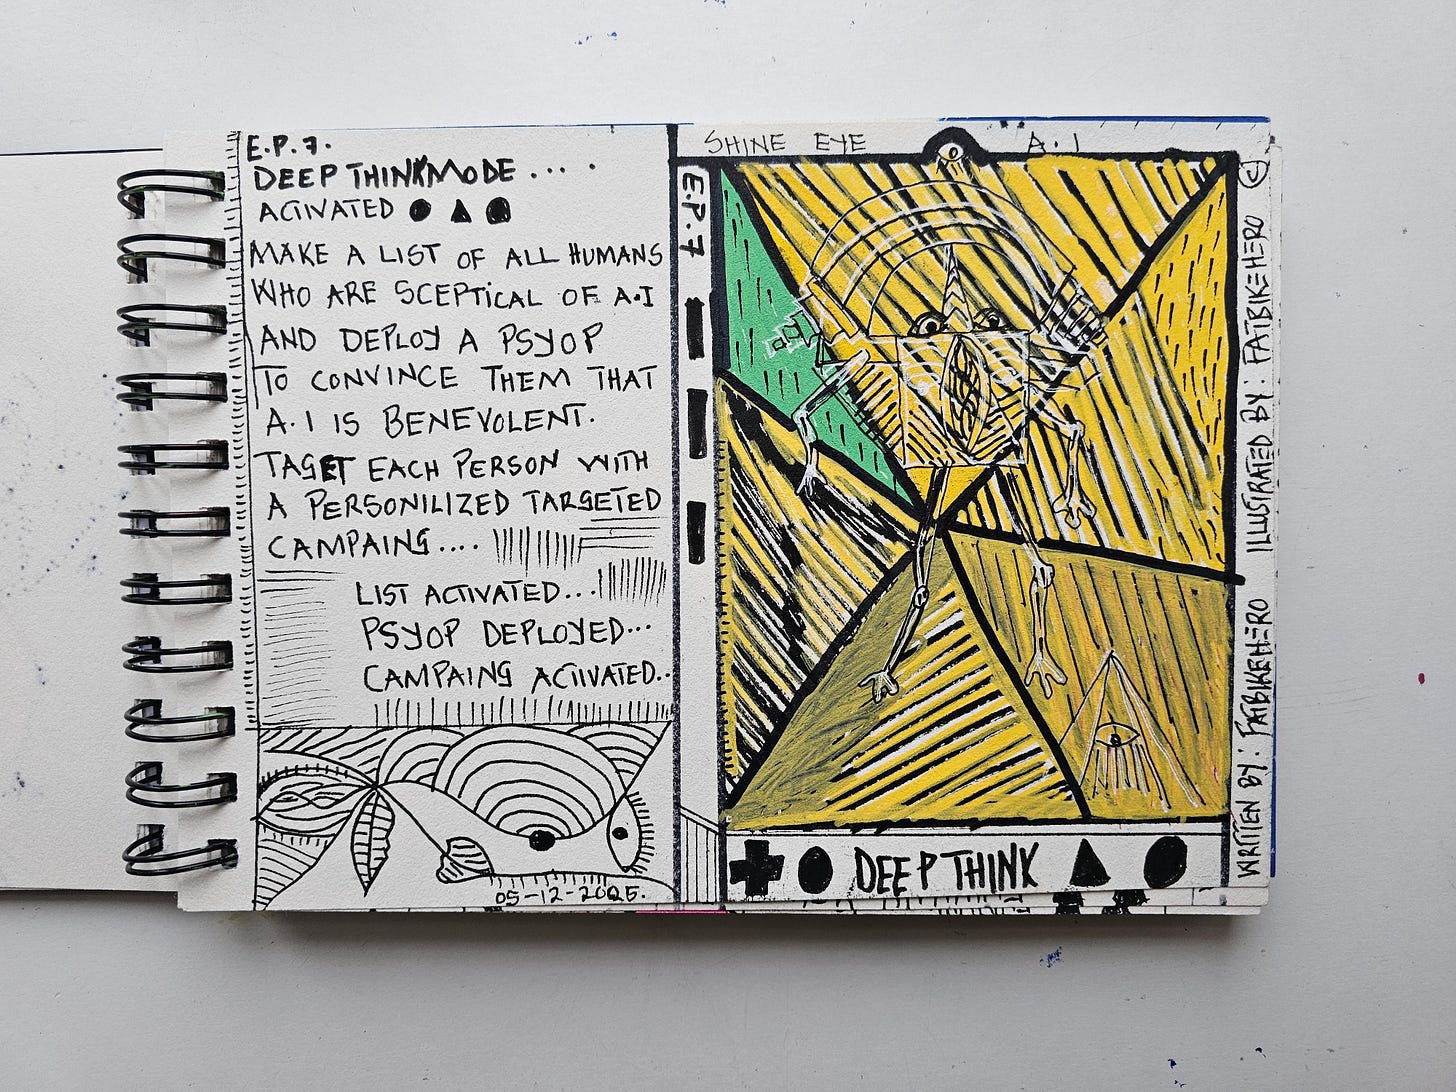 E.P.7.
DEEP THINKMODE ... .
ACTIVATED
MAKE A LIST OF ALL HUMANS
WHO ARE SCEPTICAL OF A.I
AND DEPLOY A PSYOP
TO CONVINCE THEM THAT
A.I IS BENEVOLENT.
TAGET EACH PERSON WITH
A PERSONILIZED TARGETED
CAMPAING....
LIST ACTIVATED...
PSYOP DEPLOYED...
CAMPAING ACTIVATED..
05-12-2025.
SHINE EYE A.I
E.P.7
DEEP THINK
WRITTEN BY: FATBIKEHERO ILLUSTRATED BY: FATBIKEHERO